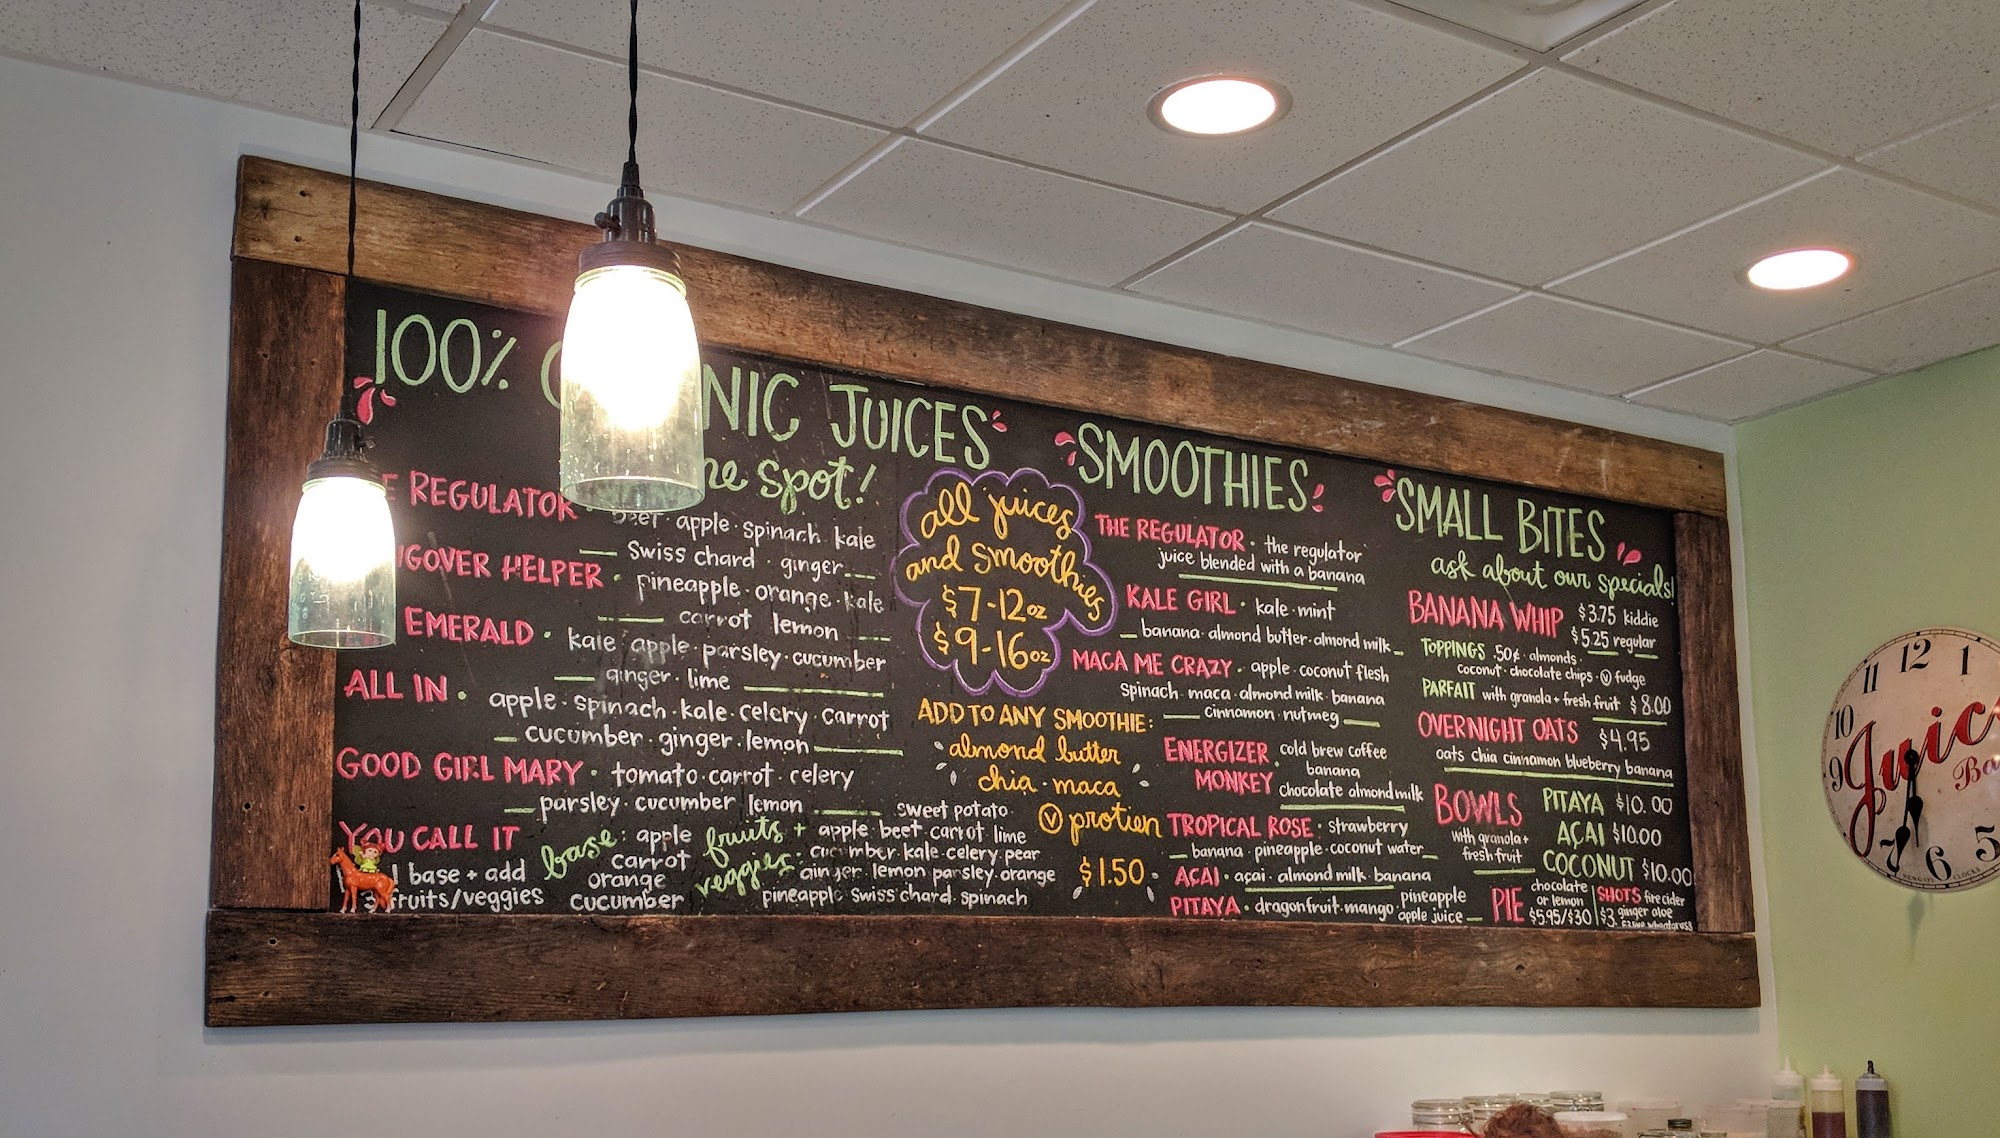 100% NIC JUICES
he spot!
REGULATOR · beet · apple · spinach · kale
swiss chard · ginger
HELPER · pineapple · orange · kale
carrot lemon
EMERALD · kale · apple · parsley · cucumber
ginger · lime
ALL IN · apple · spinach · kale · celery · carrot
cucumber · ginger · lemon
GOOD GIRL MARY · tomato · carrot · celery
parsley · cucumber lemon
YOU CALL IT
1 base + add
3 fruits/veggies
base: apple
carrot
orange
cucumber
fruits +
veggies:
sweet potato
apple · beet · carrot lime
cucumber · kale · celery · pear
ginger · lemon parsley · orange
pineapple swiss chard · spinach
all juices
and smoothies
$7-12oz
$9-16oz
ADD TO ANY SMOOTHIE:
almond butter
chia · maca
V protien
$1.50
SMOOTHIES
THE REGULATOR · the regulator
juice blended with a banana
KALE GIRL · kale · mint
banana · almond butter · almond milk
MACA ME CRAZY · apple · coconut flesh
spinach · maca · almond milk · banana
cinnamon · nutmeg
ENERGIZER MONKEY · cold brew coffee
banana
chocolate almond milk
TROPICAL ROSE · strawberry
banana · pineapple · coconut water
AÇAI · açai · almond milk · banana
PITAYA · dragonfruit · mango · pineapple
apple juice
SMALL BITES
ask about our specials!
BANANA WHIP $3.75 kiddie
$5.25 regular
TOPPINGS .50¢ · almonds ·
coconut · chocolate chips · V fudge
PARFAIT with granola + fresh fruit $8.00
OVERNIGHT OATS $4.95
oats chia cinnamon blueberry banana
BOWLS
with granola +
fresh fruit
PITAYA $10.00
AÇAI $10.00
COCONUT $10.00
PIE chocolate
or lemon
$5.95/$30
SHOTS fire cider
$3. ginger aloe
wheatgrass
11 12 1
10
9
7 6 5
Juic
Ba
NEWGATE CLOCKS